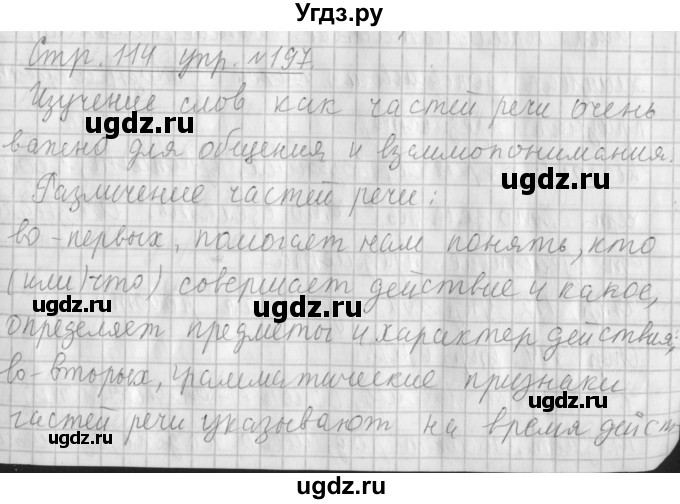 Угдз.ру
Стр. 114 упр. №197.
Изучение слов как частей речи очень
важно для общения и взаимопонимания.
Различение частей речи:
во-первых, помогает нам понять, кто
(или что) совершает действие и какое,
определяет предметы и характер действия;
во-вторых, грамматические признаки
частей речи указывают на время дейст
угдз.ру
угдз.ру
угдз.ру
угдз.ру
угдз.ру
угдз.ру
угдз.ру
угдз.ру